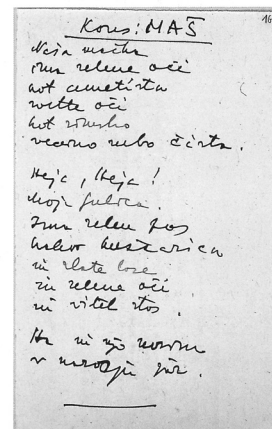 16
Kons: MAŠ
Naša mačka
ima zelene oči
kot ametista
svetle oči
kot zimsko
večerno nebo čista.
Heja, Heja!
Moja ljubica.
Ima zelen pas
kakor kuščarica
in zlate lase
in zelene oči
in vitek stas.
Ha in njo nosim
v naročju jaz.